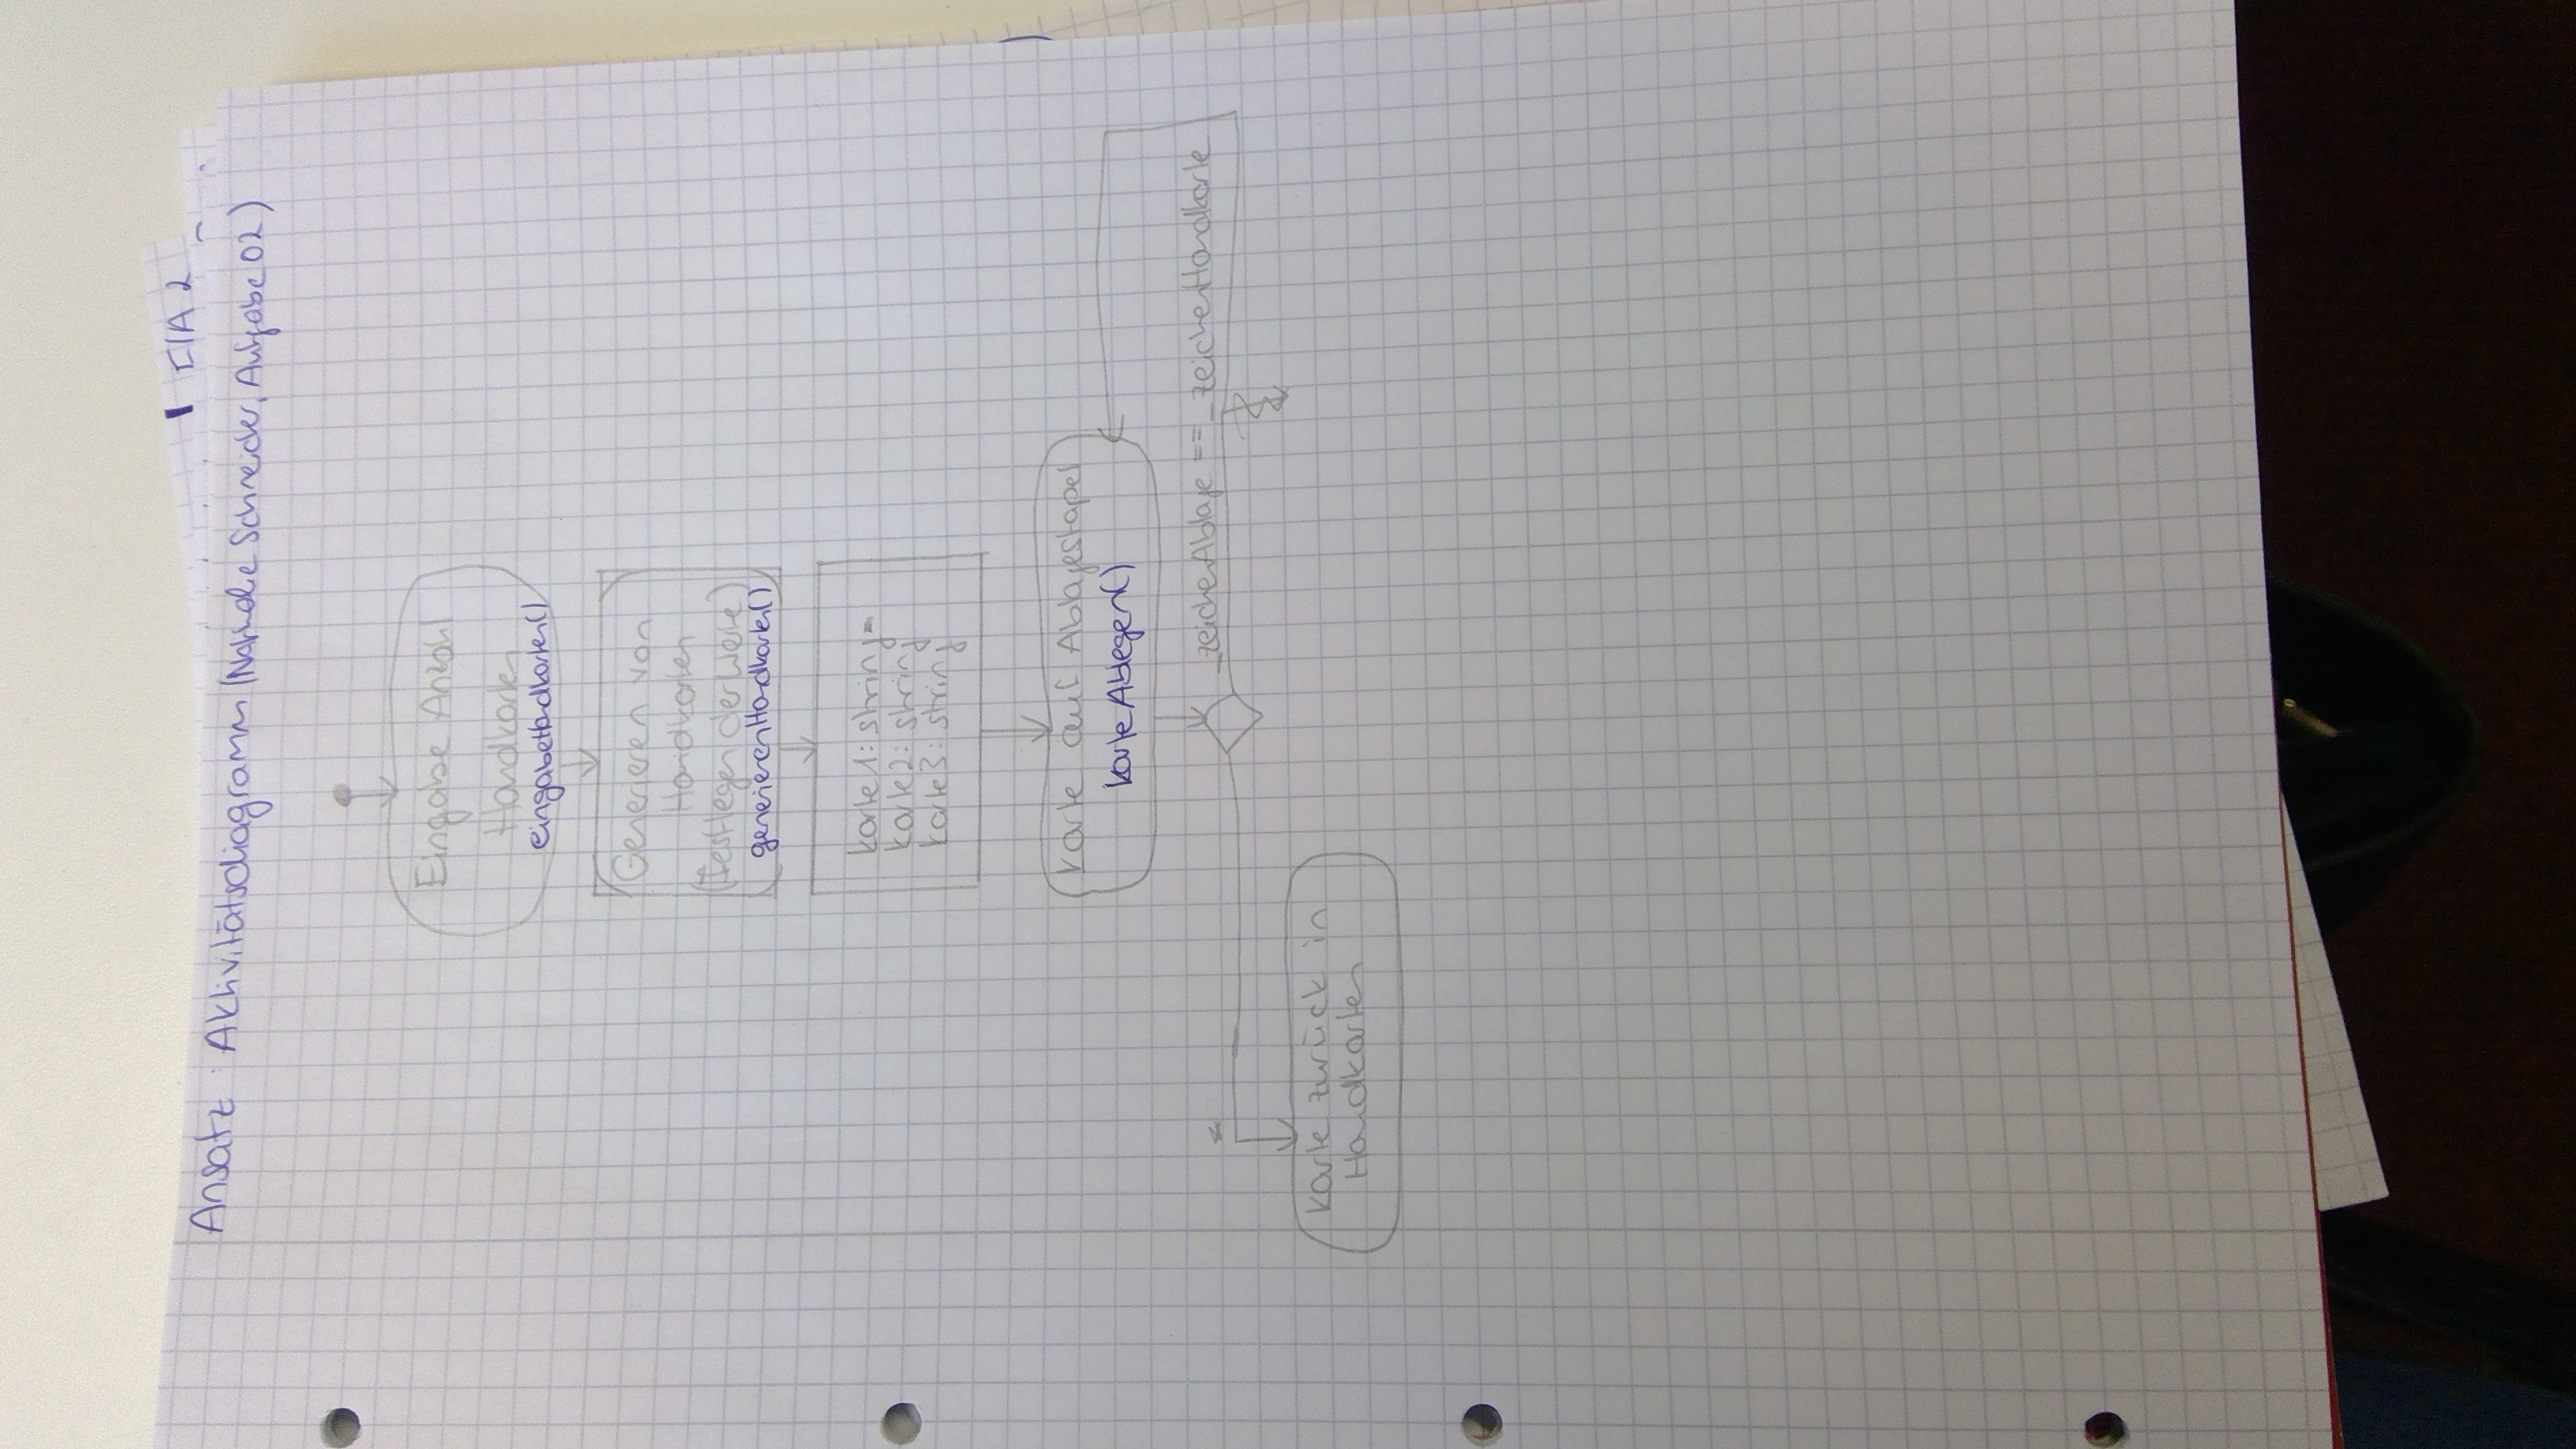 EIA 2
Ansatz: Aktivitätsdiagramm (Nathalie Schneider, Aufgabe 02)
Eingabe Anzahl
Handkarten
eingabeHandkarten()
Generieren von
Handkarten
(Festlegen der Werte)
generierenHandkarten()
karte1: string
karte2: string
karte3: string
Karte auf Ablagestapel
karteAblegen()
_zeichenAblage == _zeichenHandkarte
*
Karte zurück in
Handkarten